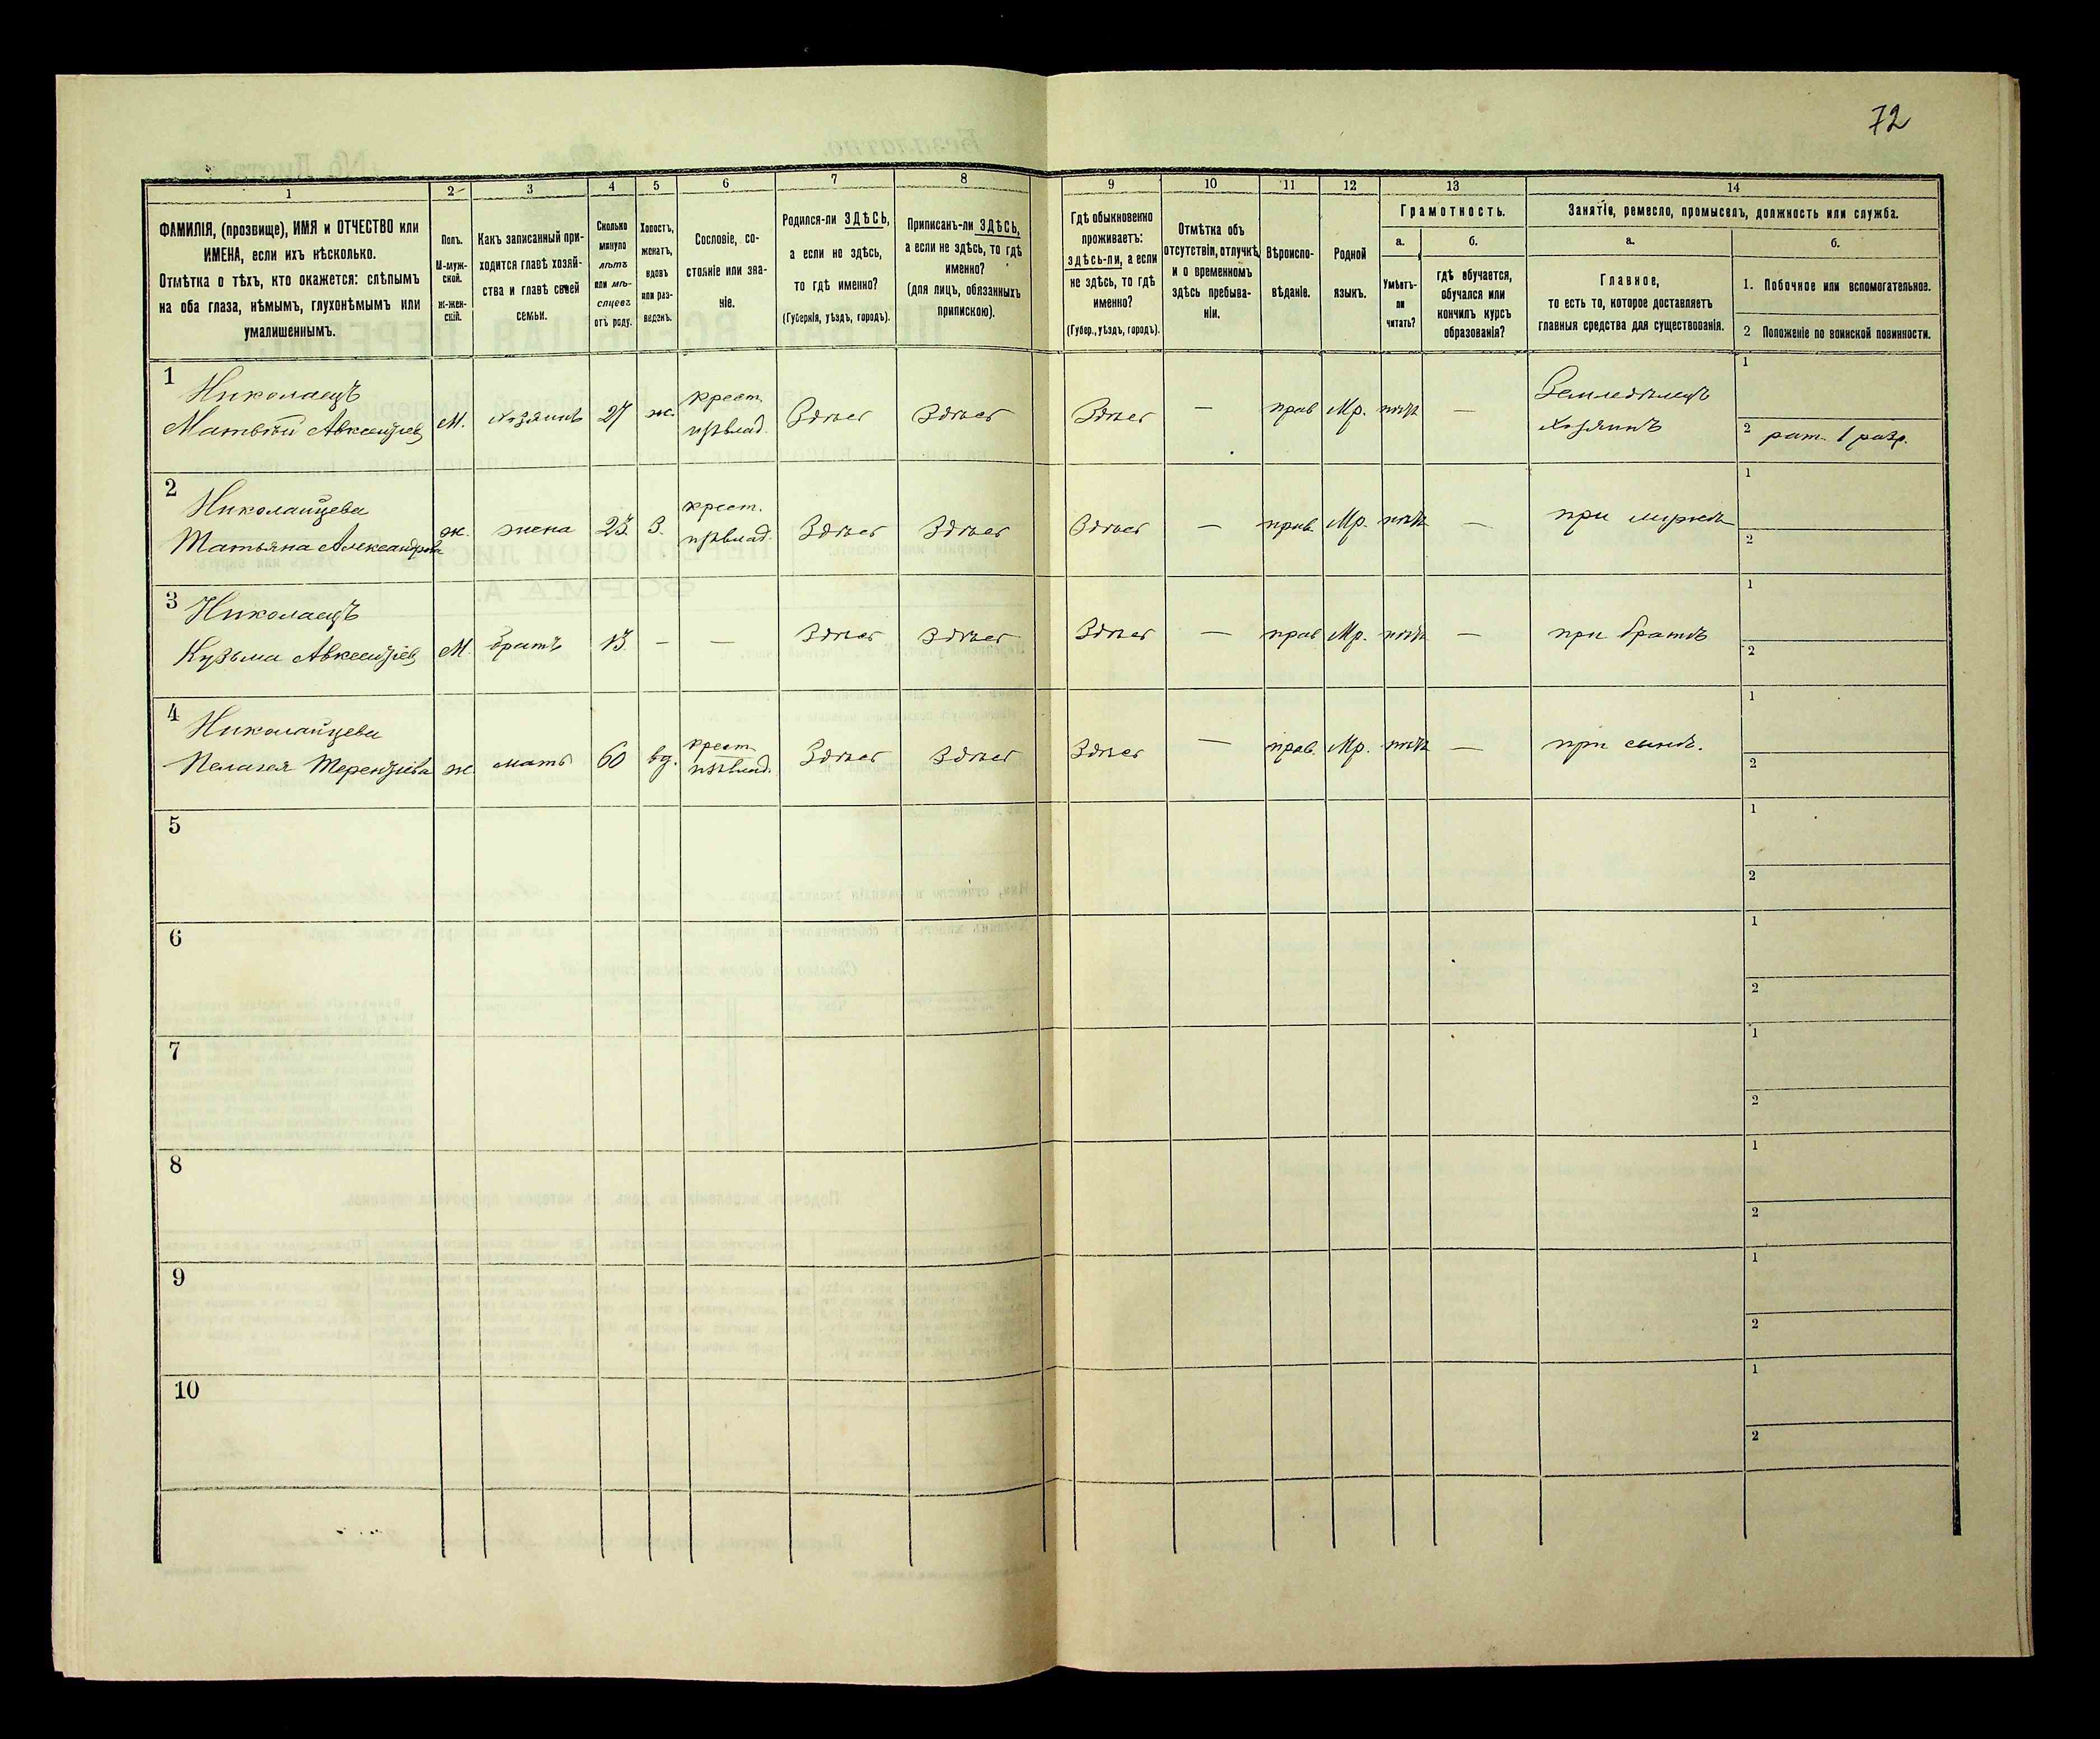 72
1 2 3 4 5 6 7 8 9 10 11 12 13 14
ФАМИЛІЯ, (прозвище), ИМЯ и ОТЧЕСТВО или
ИМЕНА, если ихъ нѣсколько.
Отмѣтка о тѣхъ, кто окажется: слѣпымъ
на оба глаза, нѣмымъ, глухонѣмымъ или
умалишеннымъ.
Полъ.
М-муж-
ской.
Ж-жен-
скій.
Какъ записанный при-
ходится главѣ хозяй-
ства и главѣ своей
семьи.
Сколько
минуло
лѣтъ
или мѣ-
сяцевъ
отъ роду.
Холостъ,
женатъ,
вдовъ
или раз-
веденъ.
Сословіе, со-
стояніе или зва-
ніе.
Родился-ли ЗДѢСЬ,
а если не здѣсь,
то гдѣ именно?
(Губернія, уѣздъ, городъ).
Приписанъ-ли ЗДѢСЬ,
а если не здѣсь, то гдѣ
именно?
(для лицъ, обязанныхъ
припискою).
Гдѣ обыкновенно
проживаетъ:
здѣсь-ли, а если
не здѣсь, то гдѣ
именно?
(Губер., уѣздъ, городъ).
Отмѣтка объ
отсутствіи, отлучкѣ
и о временномъ
здѣсь пребыва-
ніи.
Вѣроиспо-
вѣданіе.
Родной
языкъ.
Грамотность.
а. б.
Умѣетъ-
ли
читать?
гдѣ обучается,
обучался или
кончилъ курсъ
образованія?
Занятіе, ремесло, промыселъ, должность или служба.
а. б.
Главное,
то есть то, которое доставляетъ
главныя средства для существованія.
1. Побочное или вспомогательное.
2 Положеніе по воинской повинности.
1 Николаецъ крест. Земледѣлецъ 1
Матвѣй Авксентіев М. хозяинъ 27 ж. изъ влад. Здѣсь Здѣсь Здѣсь — прав Мр. нѣтъ — хозяинъ 2 рат. 1 разр.
2 Николайцева крест. 1
Татьяна Александрова ж. жена 23 З. изъ влад. Здѣсь Здѣсь Здѣсь — прав. Мр. нѣтъ — при мужѣ 2
3 Николаецъ 1
Кузьма Авксентіев М. братъ 13 — — Здѣсь Здѣсь Здѣсь — прав Мр. нѣтъ — при братѣ 2
4 Николайцева крест. 1
Пелагея Терентіева ж. мать 60 вд. изъ влад. Здѣсь Здѣсь Здѣсь — прав. Мр. нѣтъ — при сынѣ. 2
5 1
2
6 1
2
7 1
2
8 1
2
9 1
2
10 1
2